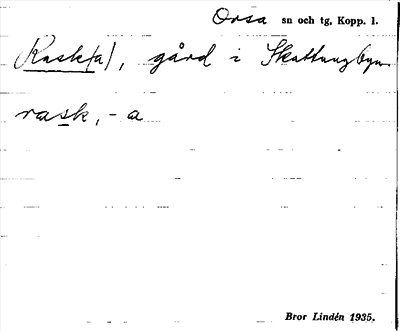 Orsa sn och tg, Kopp. l.
Rask(a), gård i Skattungbyn
rask, -a
Bror Lindén 1935.